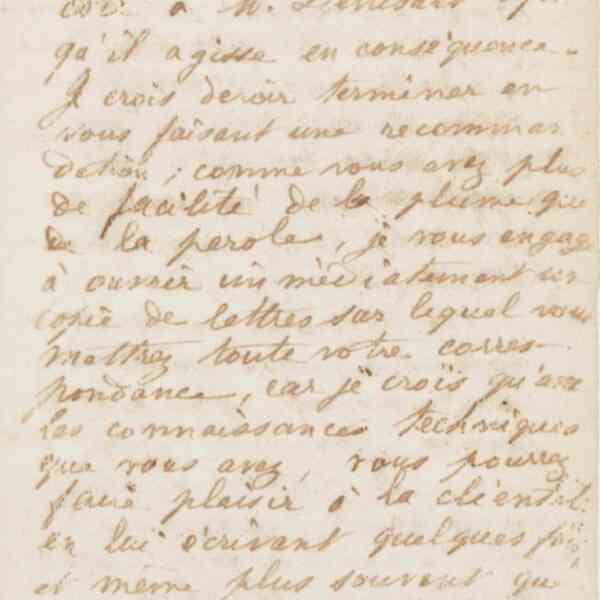 à M.
qu'il agisse en conséquence.
Je crois devoir terminer en
vous faisant une recomman
dation, comme vous avez plus
de facilité de la plume que
de la parole, je vous engage
à ouvrir immédiatement un
copie de lettres sur lequel vous
mettrez toute votre corres
pondance, car je crois qu'avec
les connaissances techniques
que vous avez, vous pourrez
faire plaisir à la clientèle
en lui écrivant quelques fois
et même plus souvent que